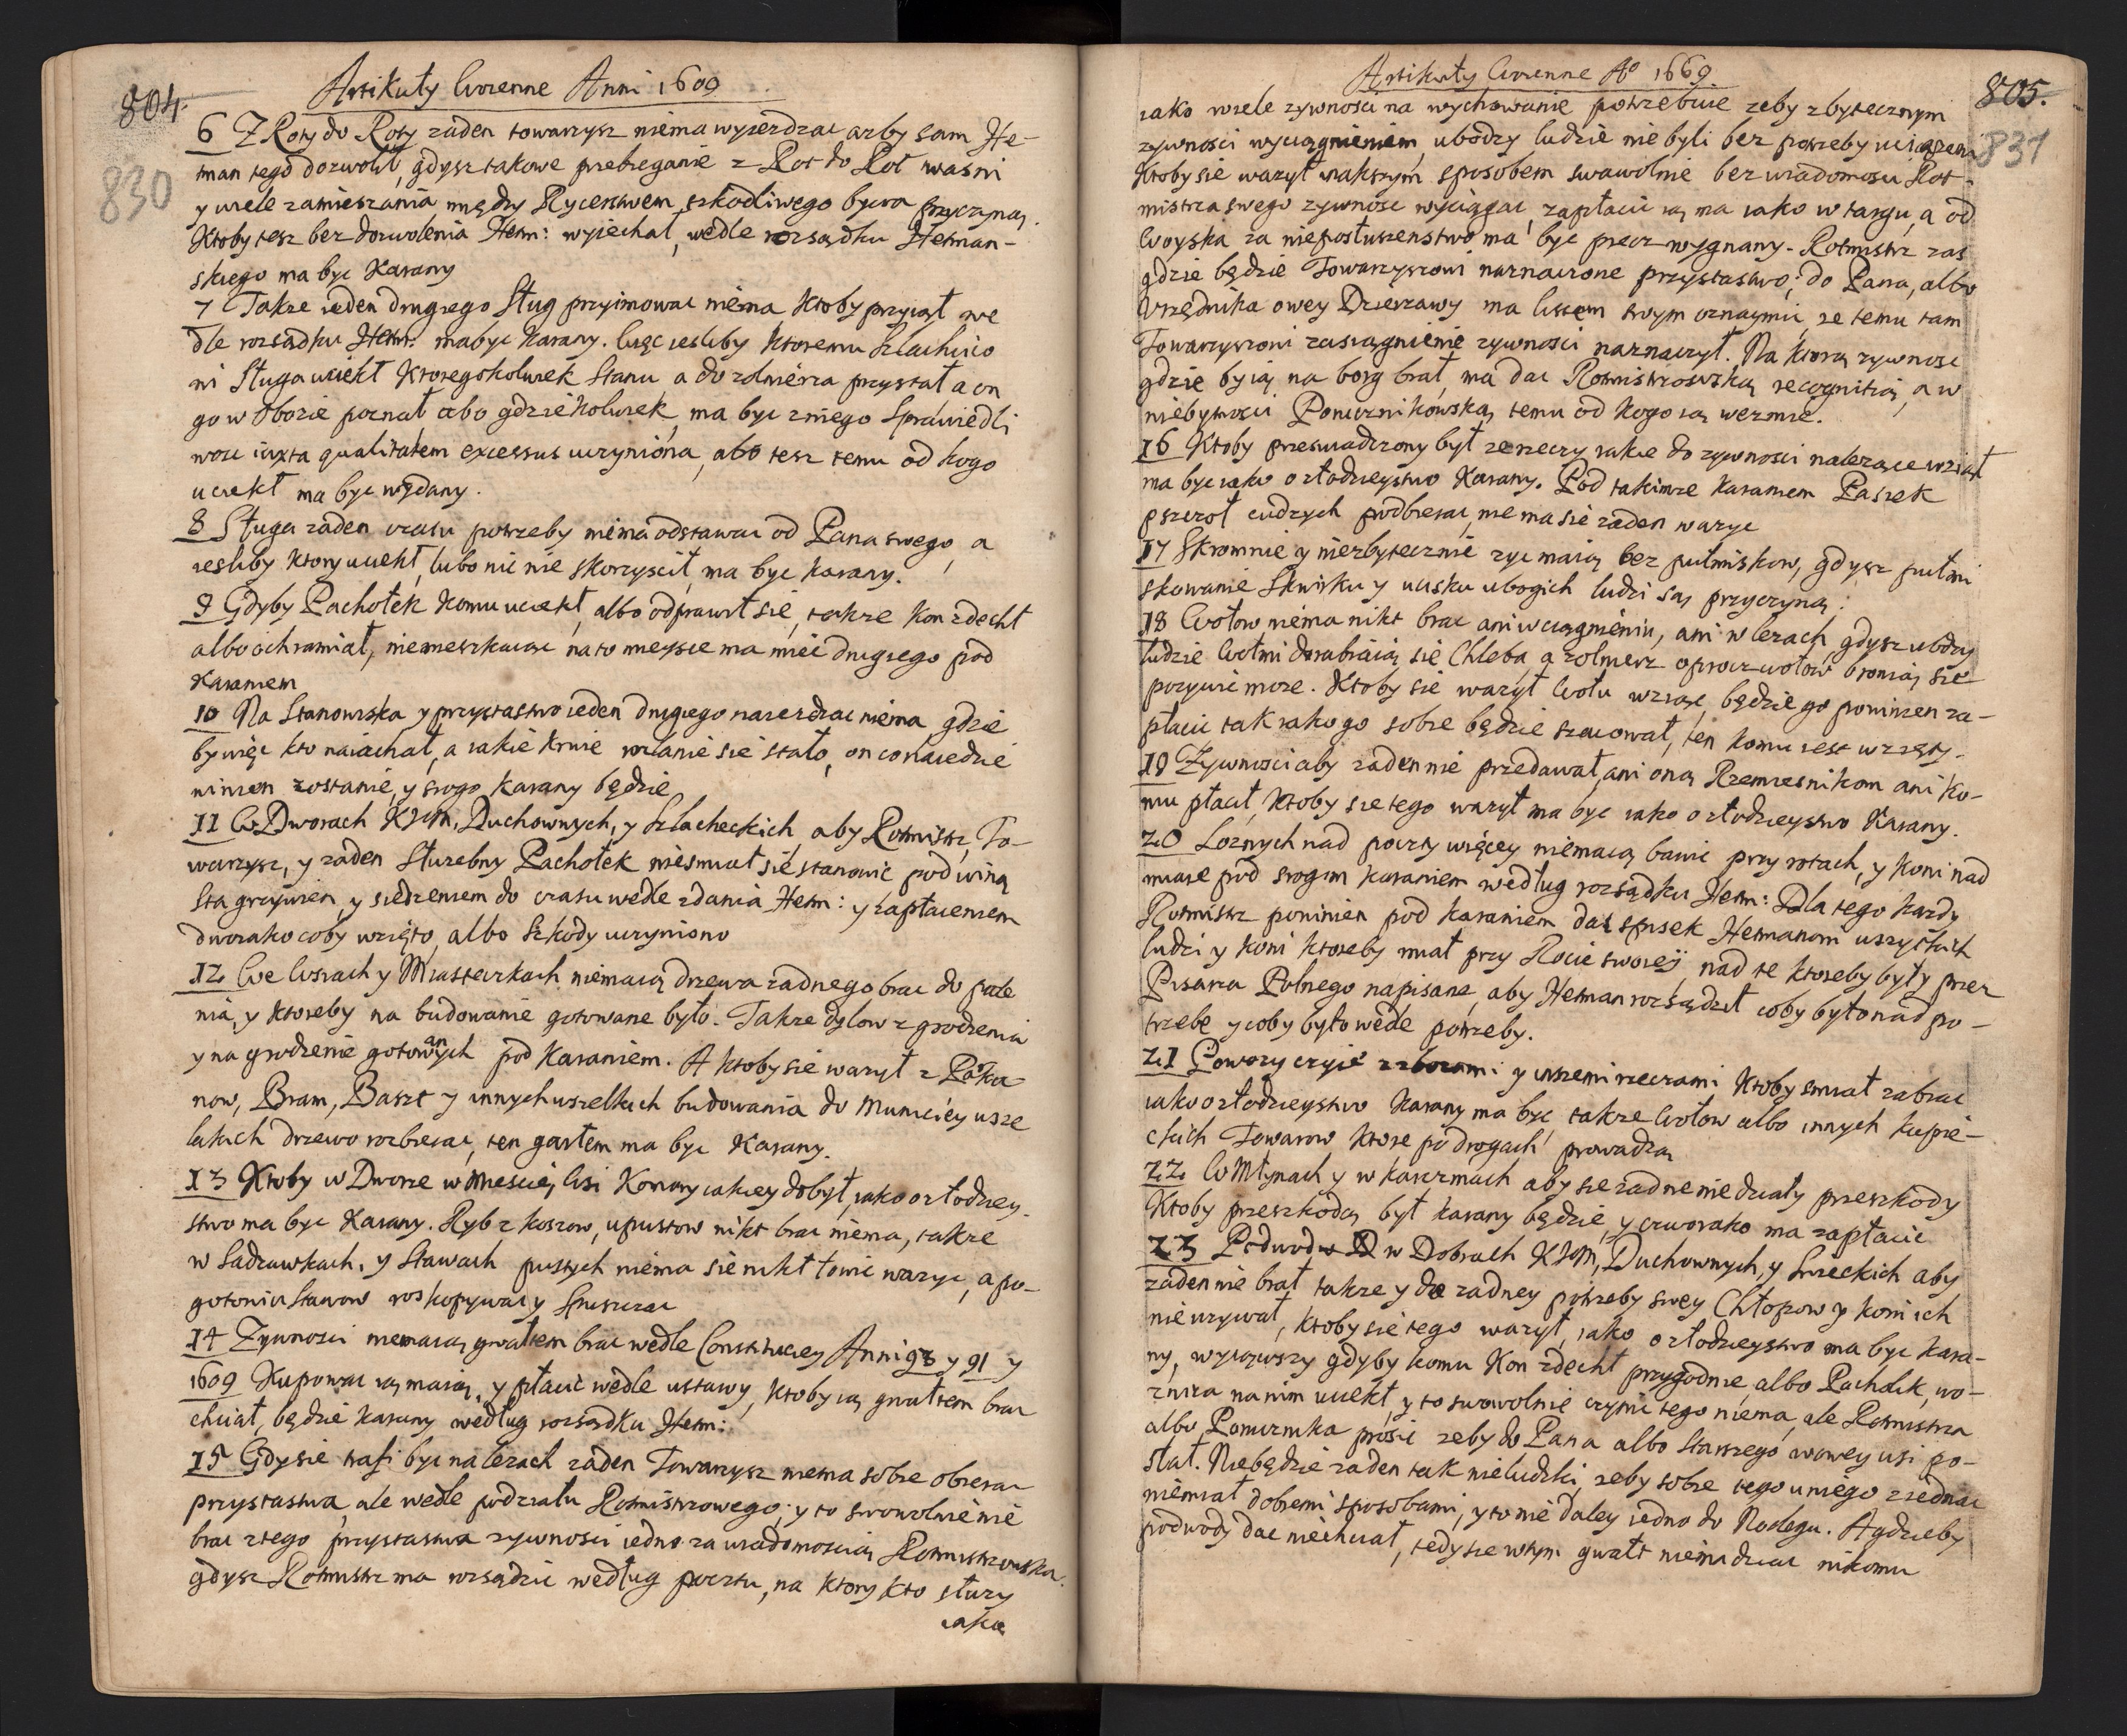 804.
Artikuły Woienne Anni 1609
830
6 Z Roty do Roty zaden towarzysz niema wyiezdzac azby sam He-
tman tego dozwolił, gdysz takowe przebieganie z Rot do Rot wasni
y wiele zamieszania między Rycerstwem szkodliwego bywa przyczyną.
Ktoby tesz bez dozwolenia Hetm: wyiechał, wedle rozsądku Hetman-
skiego ma byc Karany
7 Takze ieden drugiego Sług przyimowac niema Ktoby przyiął we
dle rozsądku Hetm: ma byc karany. Więc iesliby ktoremu Szlachcico
wi Sługa uciekł ktoregokolwiek Stanu a do zołnierza przystał a on
go w Obozie poznał abo gdziekolwiek, ma byc z niego Sprawiedli
wosc iuxta qualitatem excessus uczyniona, abo tesz temu od kogo
uciekł ma byc wydany.
8 Sługa zaden czasu potrzeby niema odstawac od Pana swego, a
iesliby ktory uciekł, lubo nic nie skorzyscił, ma byc karany.
9 Gdyby Pachołek komu uciekł, albo odprawił się, takze kon zdechł
albo ochramiał, niemieszkaiąc na to mieysce ma miec drugiego pod
Karaniem
10 Na Stanowiska y przystastwo ieden drugiego naiezdzac niema gdzie
by więc kto naiachał, a iakie krwie rozlanie się stało, on co naiedzie
winien zostanie, y srogo karany będzie
11 W Dworach KJM, Duchownych, y Szlacheckich, aby Rotmistrz, To-
warzysz, y zaden Słuzebny Pachołek niesmiał się stanowic pod winą
Sta grzywien y siedzeniem do czasu wedle zdania Hetm: y zapłaceniem
dworako coby wzięto, albo Szkody uczyniono
12 We Wsiach y Miasteczkach niemaią drzewa zadnego brac do pale
nia, y ktoreby na budowanie gotowane było. Takze dylow z grodzenia
y na grodzenie gotowanych pod Karaniem. A ktoby się wazył z Parka
now, Bram, Baszt y innych wszelkich budowania do Municiey wsze
lakich drzewo rozbierac, ten gardłem ma byc Karany.
13 Ktoby w Dworze w Miescie, Wsi Komory iakiey dobył, iako o złodziey-
stwo ma byc Karany. Ryb z koszow, upustow nikt brac niema, takze
w Sadzawkach, y Stawach pustych niema się nikt łowic wazyc, a po-
gotowiu Stawow roskopywac y Spuszczac
14 Zywnosci niemaią gwałtem brac wedle Constituciey Anni 93 y 91 y
1609 Kupowac ią maią, y płacic wedle ustawy, ktoby ią gwałtem brac
chciał, będzie karany według rozsądku Hetm:
15 Gdy się trafi byc na lezach zaden Towarzysz niema sobie obierac
przystastwa, ale wedle podziału Rotmistrzowego; y to swowolnie nie
brac z tego przystastwa zywnosci iedno za wiadomoscią Rotmistrzowską.
gdysz Rotmistrz ma rozsądzic według pocztu, na ktory kto słuzy
iako
Artikuły Woienne Ao 1669.
805.
831
iako wiele zywnosci na wychowanie potrzebuie zeby zbytecznym
zywnosci wyciągnieniem ubodzy ludzie nie byli bez potrzeby uciązeni
Ktoby się wazył inakszym sposobem swawolnie bez wiadomosci Rot-
mistrza swego zywnosc wyciągac, zapłacic ią ma iako w targu, a od
Woyska za nieposłuszenstwo ma byc precz wygnany. Rotmistrz zas
gdzie będzie Towarzyszowi naznaczone przystastwo, do Pana, albo
Vrzędnika owey Dzierzawy ma listem swym oznaymic, ze temu tam
Towarzyszowi zasiągnienie zywnosci naznaczył. Na ktorą zywnosc
gdzie by ią na borg brał, ma dac Rotmistrzowską recognitią, a w
niebytnosci Porucznikowską temu od kogo ią wezmie.
16 Ktoby przeswiadczony był ze rzeczy iakie do zywnosci nalezące wziął
ma byc iako o złodzieystwo Karany. Pod takimze karaniem Pasiek
pszczoł cudzych podbierac, nie ma się zaden wazyc
17 Skromnie y niezbytecznie zyc maią bez putmiskow, gdysz putmi
skowanie Skwirku y ucisku ubogich ludzi są przyczyną.
18 Wołow niema nikt brac ani w ciągnieniu, ani w lezach, gdysz ubodzy
ludzie Wołmi dorabiaią się Chleba, a zołnierz oprocz wołow bronią się
pozywic moze. Ktoby się wazył Wołu wziąc, będzie go powinien za-
płacic tak iako go sobie będzie szacował, ten komu iest wzięty.
19 Zywnosci aby zaden nie przedawał, ani oną Rzemiesnikom ani ko-
mu płacił, ktoby się tego wazył ma byc iako o złodzieystwo Karany.
20 Loznych nad poczty więcey niemaią bawic przy rotach, y koni nad
miarę pod srogim karaniem według rozsądku Hetm: Dla tego kazdy
Rotmistrz powinien pod karaniem dac spisek Hetmanowi wszystkich
ludzi y koni ktoreby miał przy Rocie swoiey, nad te ktoreby były przez
Pisarza Polnego napisane, aby Hetman rozsądził coby było nad po-
trzebę y coby było wedle potrzeby.
21 Powozy czyie z zbozami y inszemi rzeczami Ktoby smiał zabrac
iako o złodzieystwo karany ma byc, takze Wołow albo innych kupie-
ckich Towarow ktore po drogach prowadzą
22 W Młynach y w karczmach aby się zadne nie działy przeszkody
Ktoby przeszkodą był karany będzie, y czworako ma zapłacic
23 Podwod w Dobrach KJM, Duchownych, y Swieckich aby
zaden nie brał takze y do zadney potrzeby swey Chłopow y koni ich
nie uzywał, ktoby się tego wazył, iako o złodzieystwo ma byc kara-
ny, wyiąwszy gdyby komu Kon zdechł przygodnie, albo Pachołek, wo-
znica na nim uciekł, y to swowolnie czynic tego niema, ale Rotmistrza
albo Porucznika prosic zeby do Pana albo Starszego w owey wsi po-
słał. Niebędzie zaden tak nieludzki, zeby sobie tego u niego ziednac
niemiał dobremi sposobami, y to nie daley iedno do Noclegu. A gdzieby
podwody dac niechciał, tedy się w tym gwałt niema dziac nikomu